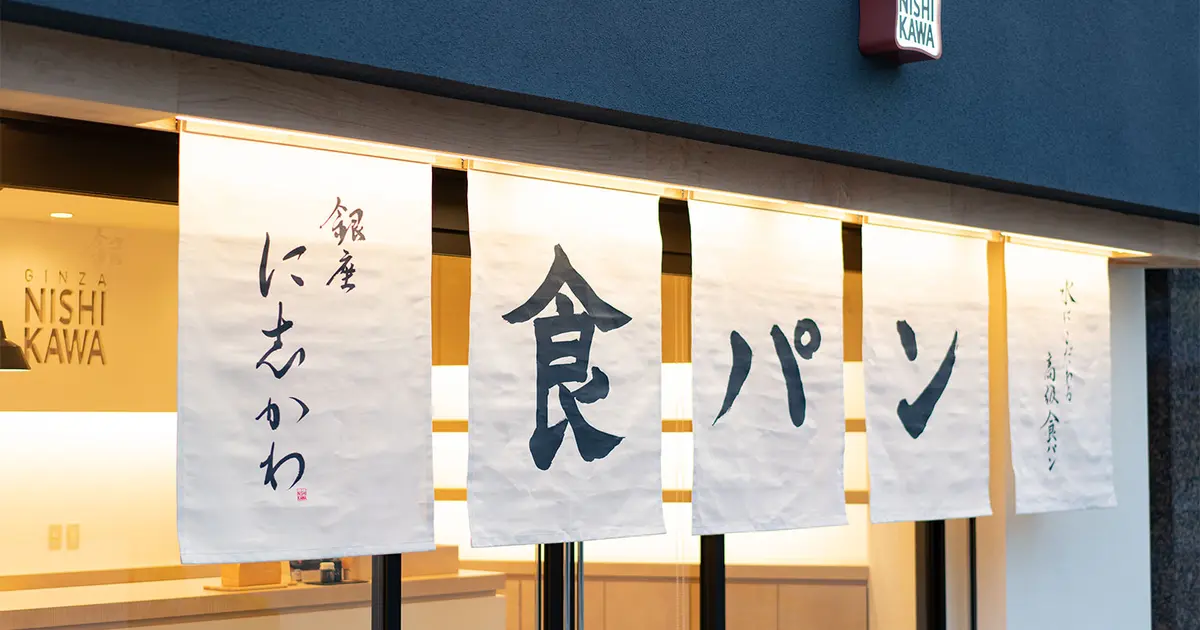 NISHI
KAWA
GINZA
NISHI
KAWA
銀座
に志かわ
食パン
水にこだわる
高級食パン